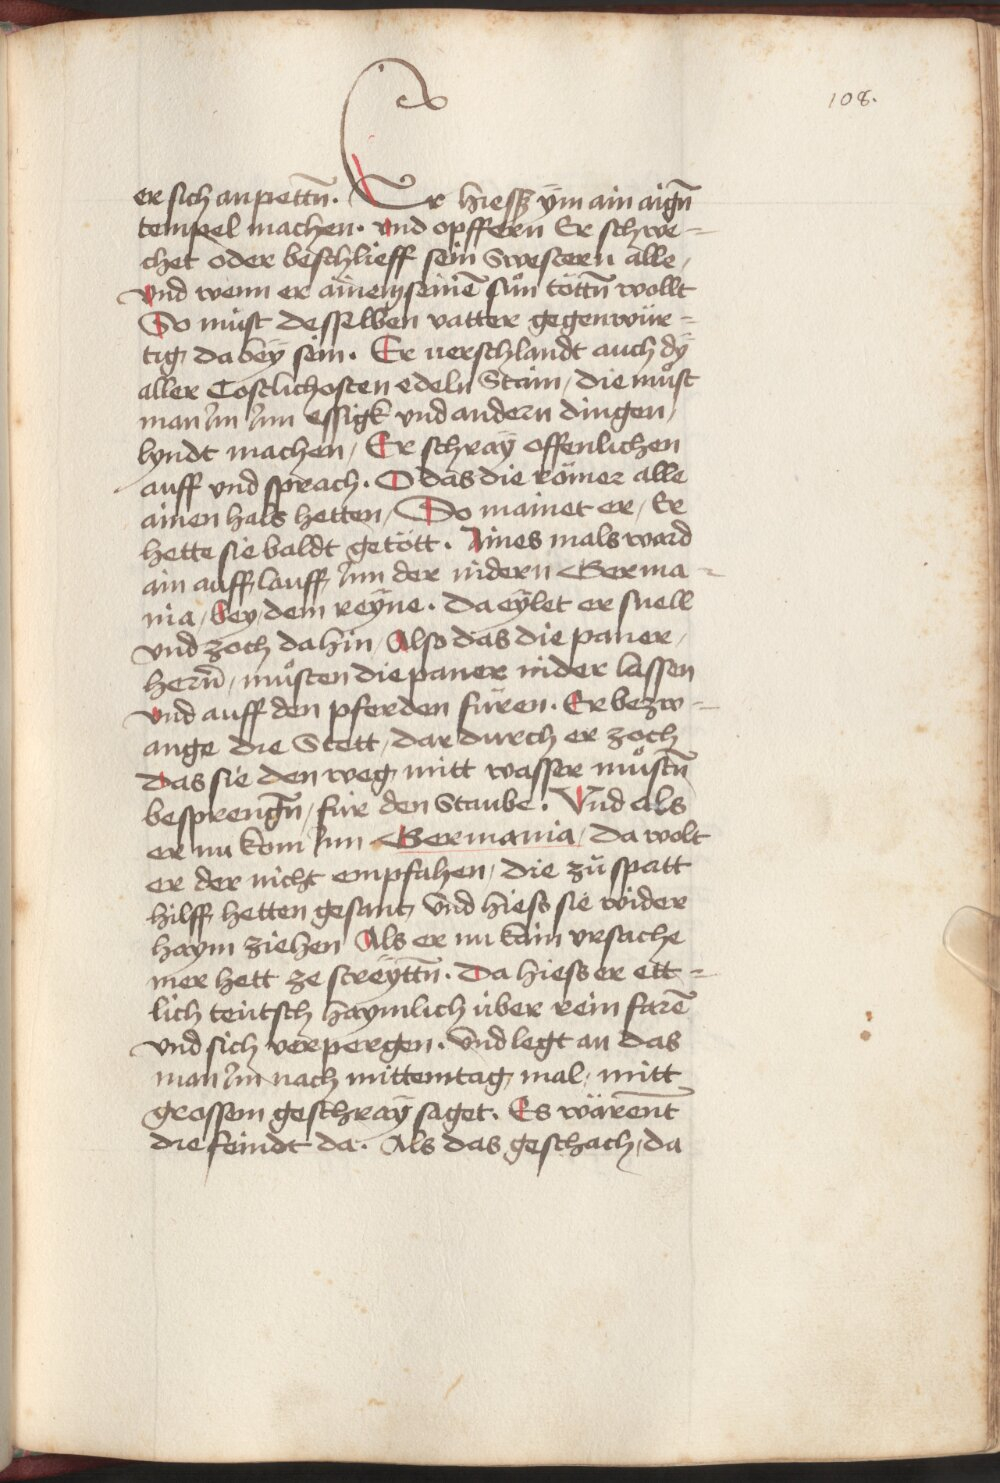 108.
er sich anpettn̄. Er hiess ÿm ain aign̄
tempel machen. vnd opffern Er schwe=
chet oder beschlieff sein Swestern alle,
vnd wenn er ainem seinē sůn töttn̄ wollt
So můst desselben vatter gegenwür=
tig da beÿ sein. Er verschlandt auch dÿ
aller Costlichosten edeln Stain, die můst
man Im Inn essigk vnd andern dingen,
lyndt machen, Er schraÿ offenlichen
auff vnd sprach. O das die römer alle
ainen hals hetten, So mainet er, Er
hette sie baldt getött. Aines mals ward
ain aufflauff Inn der nidern Germa=
nia, bey dem reÿne. Da eÿlet er snell
vnd zoch dahin, Also das die paner,
hern̄, můsten die paner nider lassen
vnd auff den pferden füren. Er bezw=
ange die Stett, dar durch er zoch
Das sie den weg mitt wasser můstn̄
besprengn̄, für den Staube. Vnd als
er nu kom Inn Germania, Da wolt
er der nicht empfahen, die zů spatt
hilff hetten gesant, vnd hiess sie wider
haym ziehen Als er nu kain vrsache
mer hett ze streÿttn̄. Da hiess er ett=
lich teütsch haymlich über rein farē
vnd sich verpergen. vnd legt an das
man Im nach mittemtag mal, mitt
grossem geschraÿ saget. Es wärent̄
die feindt da. Als das geschach, da